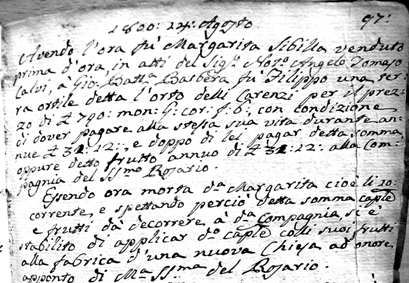 1800: 24: Agosto
97:
Avendo l'ora fu' Margarita Sibilla venduto
prima d'ora in atti del Sig.r Not.o Angelo Tomaso
Calvi, a Gio: Batt.a Barbera fu' Filippo una ter-
ra ortile detta l'orto delli Carenzi per il prez-
zo di £ 790: mon: G: cor: f: b: con condizione
di dover pagare alla stessa sua vita durante an-
nue £ 31: 12:, e doppo di lei pagar detta somma,
oppure detto frutto annuo di £ 31: 12: alla Com-
pagnia del SS.mo Rosario.
Essendo ora morta d.a Margarita cioè li 20:
corrente, e spettando perciò detta somma cap.le
e frutti da decorrere, a d.a Compagnia, si è
stabilito di applicar d.o cap.le colli suoi frutti
alla fabrica d'una nuova Chiesa ad onore
apponto di M.a SS.ma del Rosario.